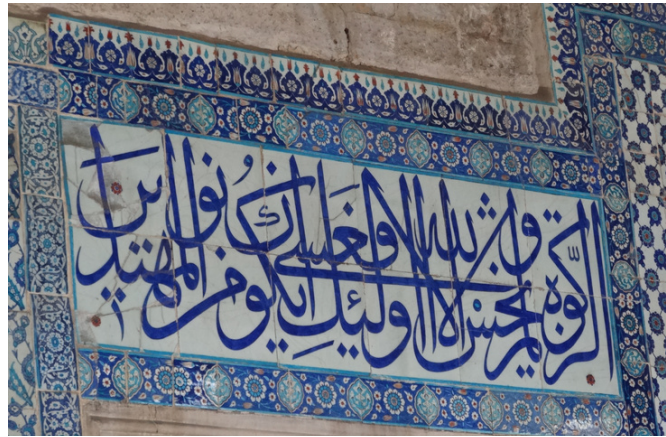 الزكوة ولم يخش الا الله فعسى اولئك ان يكونوا من المهتدين